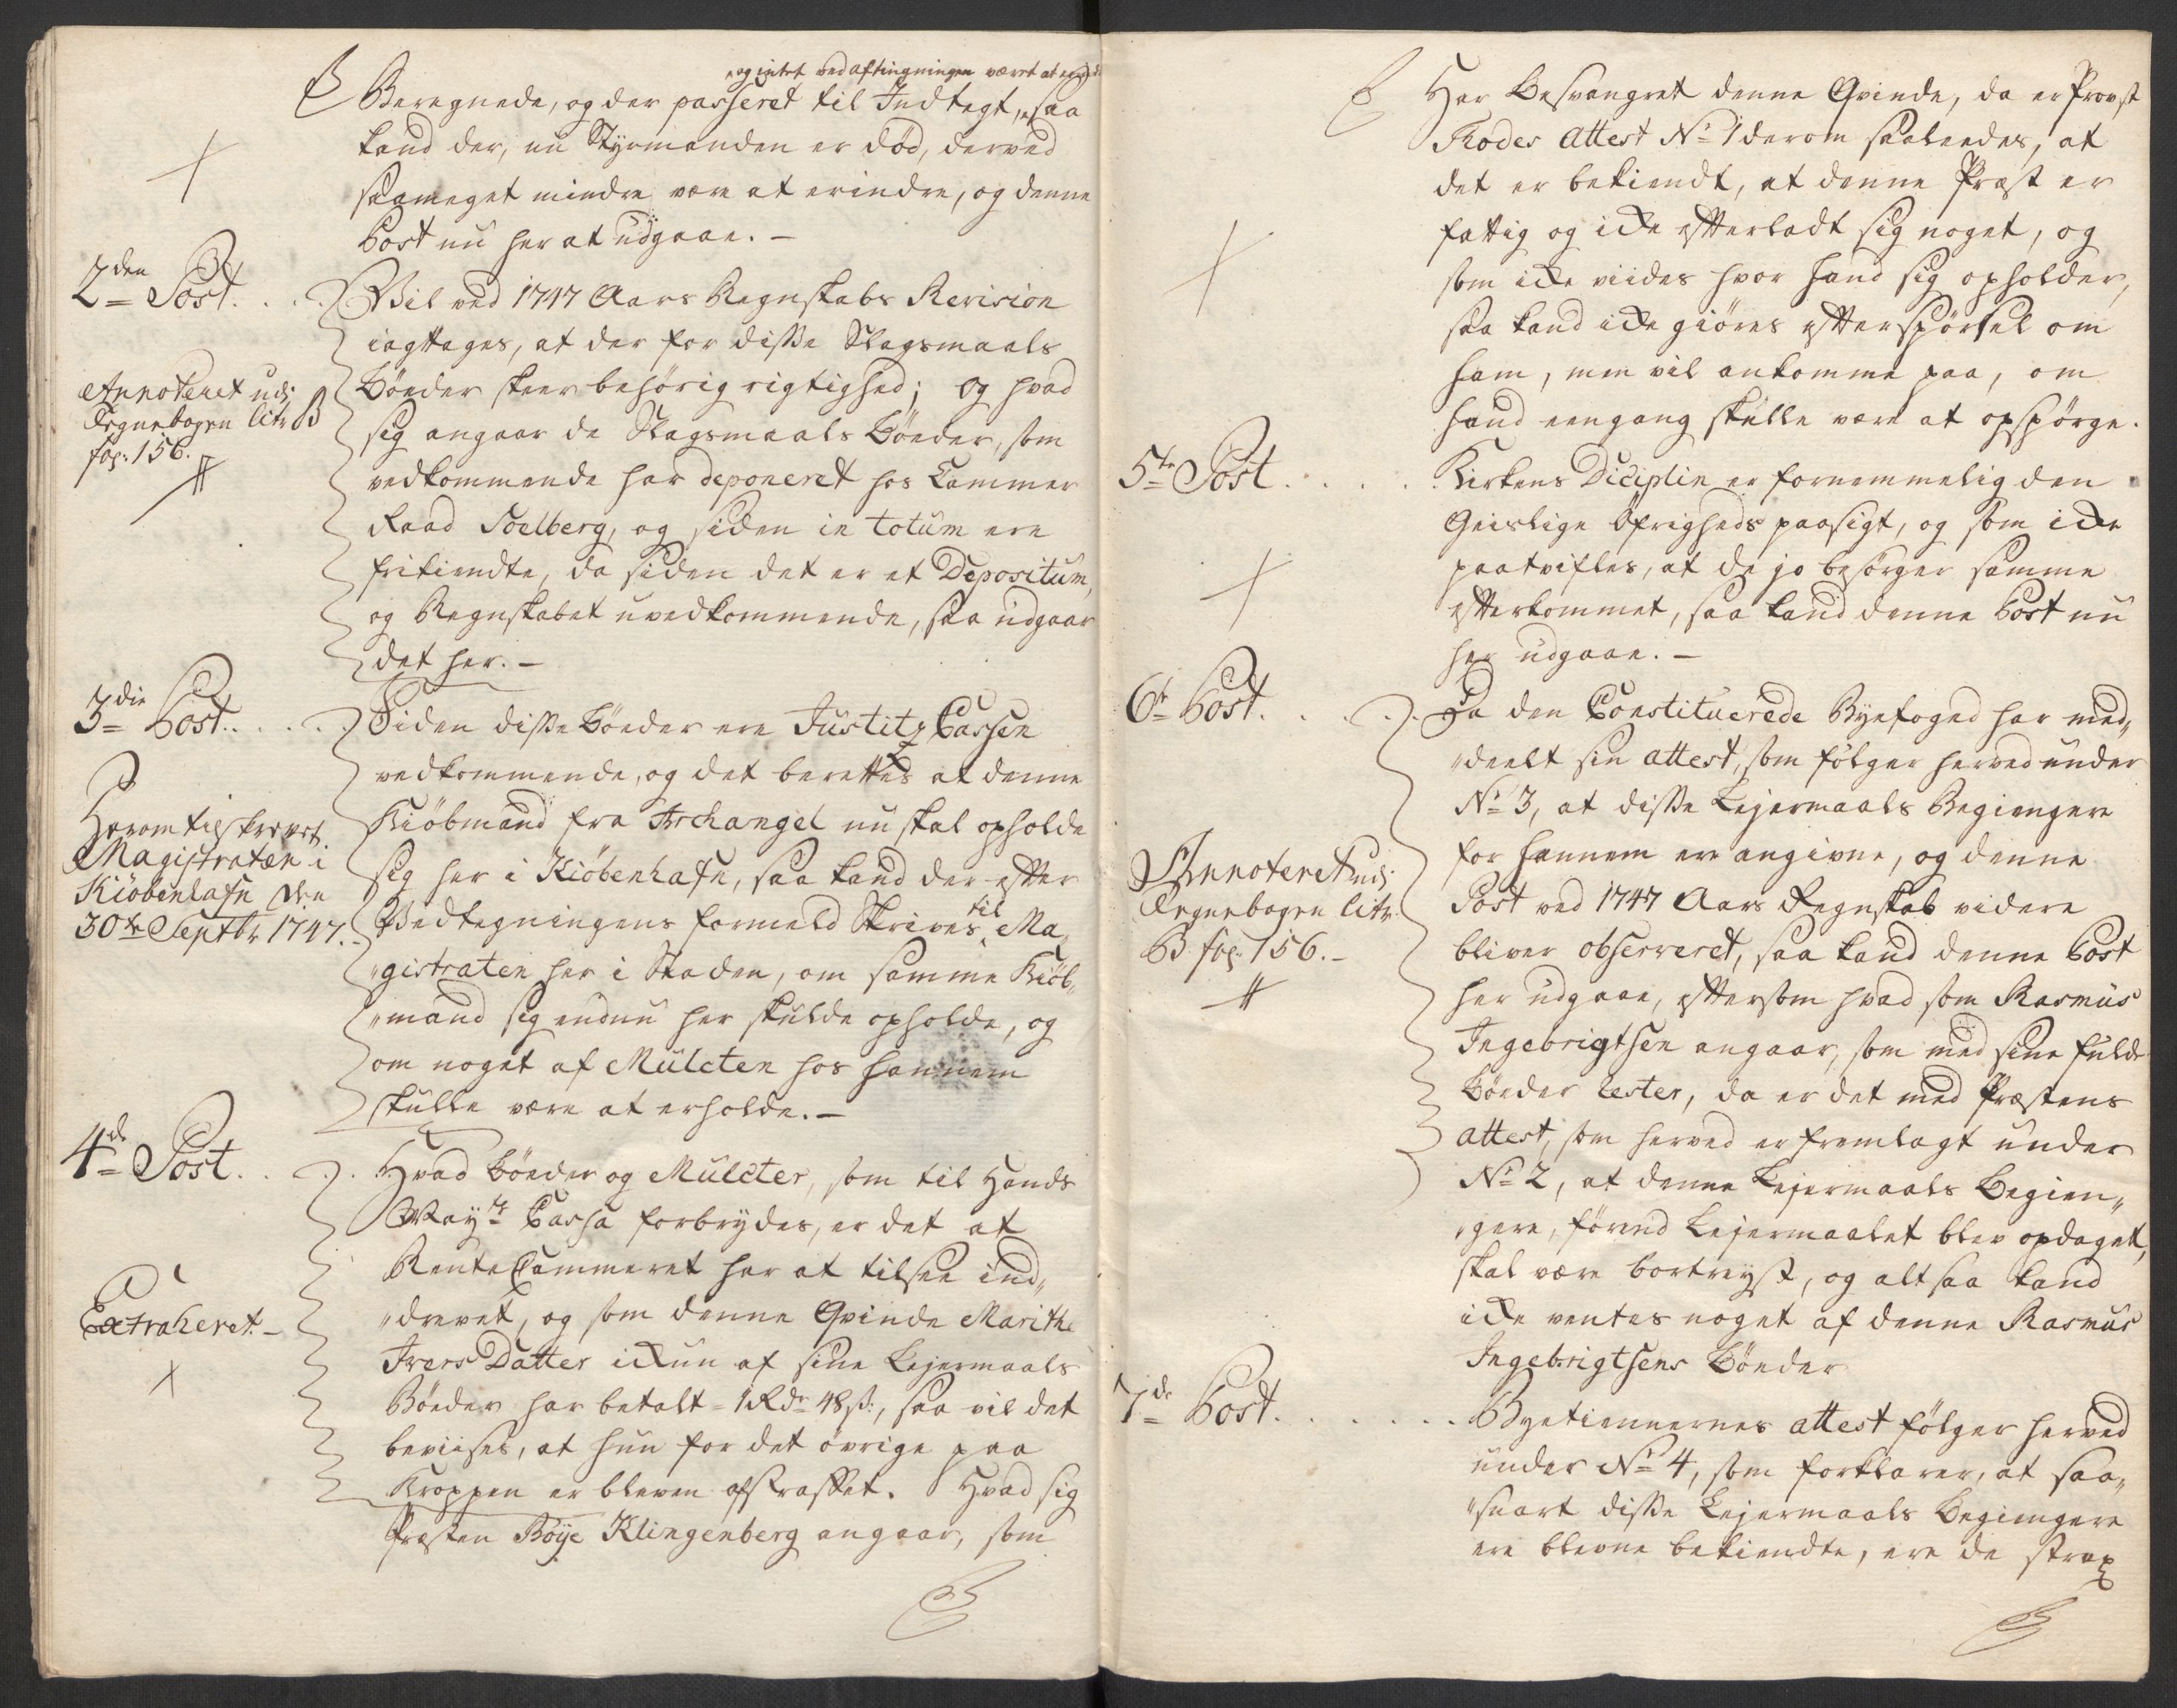 og intet ved aftingningen været at
Beregnede, og der passeret til Indtegt, saa
kand der, nu Styrmanden er død, derved
saameget mindre være at erindre, og denne
Post nu her at udgaae. –
2den Post. . .
Vil ved 1747 Aars Regnskabs Revision
iagttages, at der for disse Slagsmaals
Annoteret udi
Tegnebogen litr B
fol: 156.
Bøeder skeer behörig rigtighed; og hvad
sig angaar de Slagsmaals Bøeder, som
vedkommende har deponeret hos Cammer
Raad Soelberg, og siden in totum ere
frikiendte, da siden det er et Depositum,
og Regnskabet uvedkommende, saa udgaar
det her. –
3die Post. . . .
Siden disse Bøeder ere Justitz Cassen
vedkommende, og det berettes at denne
Kiöbmand fra Archangel nu skal opholde
Herom tilskrevet
Magistraten i
Kiöbenhafn den
30te Septbr 1747.
sig her i Kiöbenhafn, saa kand der efter
Vedtegningens formeld Skrives til Ma„
„gistraten her i Staden, om samme Kiöb„
„mand sig endnu her skulde opholde, og
om noget af Mulcten hos hannem
skulle være at erholde. –
4de Post. . .
Hvad Bøeder og Mulcter, som til Hands
Mayts Cassa forbrydes, er det at
RenteCammeret har at tilsee ind„
„drevet, og som denne Qvinde Marithe
Extraheret –
Ivers Datter ickun af sine Lejermaals
Bøeder har betalt = 1 Rdr 48 ß:, saa vil det
beviises, at hun for det övrige paa
Kroppen er bleven afstraffet. Hvad sig
Præsten Böye Klingenberg angaar, som
Har besvangret denne Qvinde, da er Provst
Rodes Attest No 1 derom saaleedes, at
det er bekiendt, at denne Præst er
fattig og icke efterladt sig noget, og
som icke viides hvor hand sig opholder,
saa kand icke giöres efterspörsel om
ham, men vil ankomme paa, om
hand eengang skulle være at opspörge.
5te Post. . . . .
Kirkens Diciplin er fornemmelig den
Geistlige Öfrigheds paasigt, og som icke
paatvifles, at de jo besörger samme
efterkommet, saa kand denne Post nu
her udgaae. –
6te Post. . . . .
Da den Constituerede Byefoged har med„
„deelt sin attest, som fölger herved under
No 3, at disse Lejermaals Begiengere
for hannem ere angivne, og denne
Annoteret udi
Tegnebogen litr:
B. fol: 156. –
Post ved 1747 Aars Regnskab videre
bliver observeret, saa kand denne Post
her udgaae, eftersom hvad som Rasmus
Ingebrigtsen angaar, som med sine fulde
Bøeder rester, da er det med Præstens
attest, som herved er fremlagt under
No 2, at denne Lejermaals Begien„
„gere, förend Lejermaalet blev opdaget,
skal være bortreyst, og altsaa kand
icke ventes noget af denne Rasmus
Ingebrigtsens Bønder
7de Post. . . . . . .
Byetiennernes attest fölger herved
under No 4, som forklarer, at saa„
„snart disse Lejermaals Begiengere
ere blevne bekiendte, ere de strax